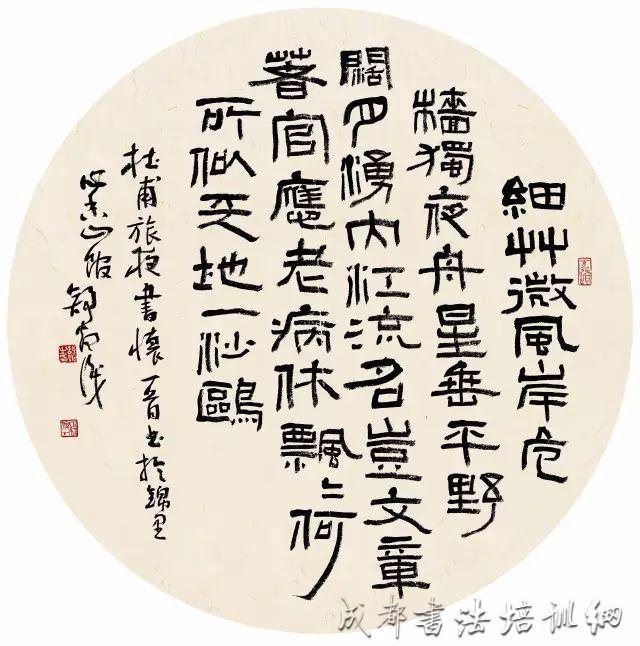 細艸微風岸危
檣獨夜舟星垂平野
闊月湧大江流名豈文章
著官應老病休飄〻何
所似天地一沙鷗
杜甫旅夜書懷一首書於錦里
山館
成都書法培訓網